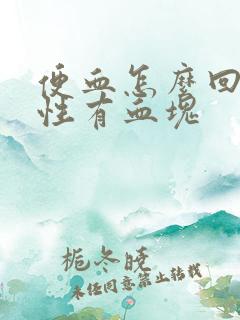 便血怎麽回
性有血塊
栀冬晓
未经同意禁止转载